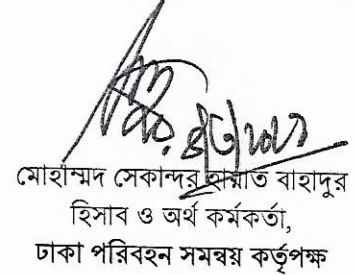 মোহাম্মদ সেকান্দর হায়াত বাহাদুর
হিসাব ও অর্থ কর্মকর্তা,
ঢাকা পরিবহন সমন্বয় কর্তৃপক্ষ